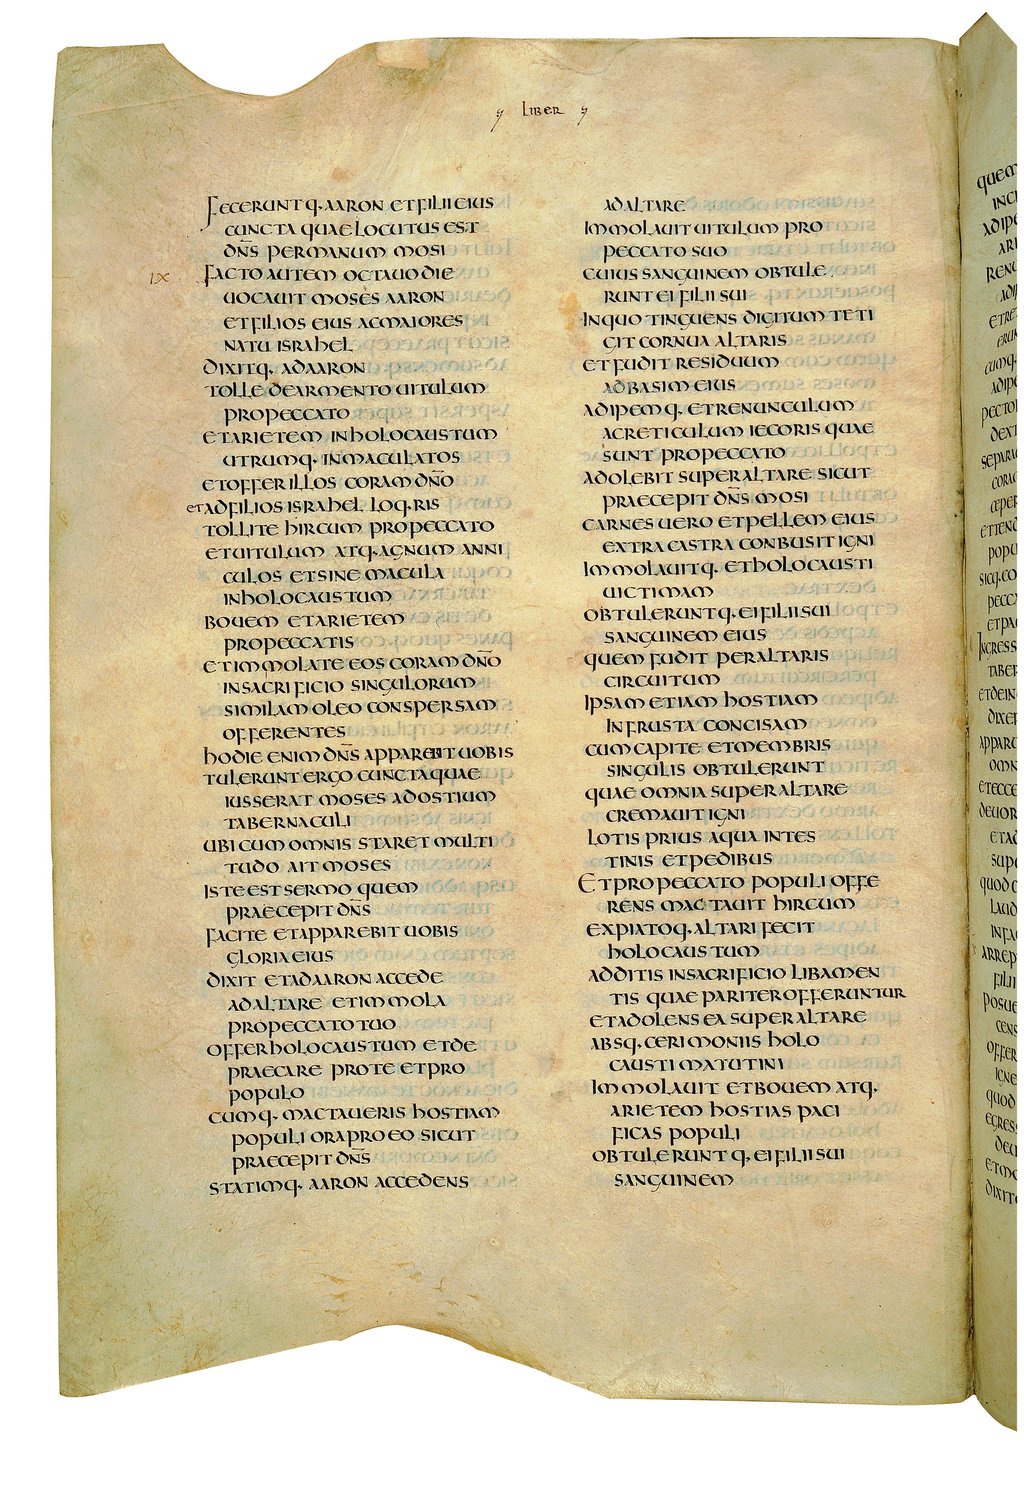 LIBER
FECERUNTQ· AARON ET FILII EIUS
CUNCTA QUAE LOCUTUS EST
DN̄S PER MANUM MOSI
IX FACTO AUTEM OCTAUO DIE
UOCAUIT MOSES AARON
ET FILIOS EIUS AC MAIORES
NATU ISRAHEL
DIXITQ· AD AARON
TOLLE DE ARMENTO UITULUM
PRO PECCATO
ET ARIETEM IN HOLOCAUSTUM
UTRUMQ· INMACULATOS
ET OFFER ILLOS CORAM DN̄O
ET AD FILIOS ISRAHEL LOQ·RIS
TOLLITE HIRCUM PRO PECCATO
ET UITULUM ATQ· AGNUM ANNI
CULOS ET SINE MACULA
IN HOLOCAUSTUM
BOUEM ET ARIETEM
PRO PECCATIS
ET IMMOLATE EOS CORAM DN̄O
IN SACRIFICIO SINGULORUM
SIMILAM OLEO CONSPERSAM
OFFERENTES
HODIE ENIM DN̄S APPAREBIT UOBIS
TULERUNT ERGO CUNCTA QUAE
IUSSERAT MOSES AD OSTIUM
TABERNACULI
UBI CUM OMNIS STARET MULTI
TUDO AIT MOSES
ISTE EST SERMO QUEM
PRAECEPIT DN̄S
FACITE ET APPAREBIT UOBIS
GLORIA EIUS
DIXIT ET AD AARON ACCEDE
AD ALTARE ET IMMOLA
PRO PECCATO TUO
OFFER HOLOCAUSTUM ET DE
PRAECARE PRO TE ET PRO
POPULO
CUMQ· MACTAUERIS HOSTIAM
POPULI ORA PRO EO SICUT
PRAECEPIT DN̄S
STATIMQ· AARON ACCEDENS
AD ALTARE
IMMOLAUIT UITULUM PRO
PECCATO SUO
CUIUS SANGUINEM OBTULE
RUNT EI FILII SUI
IN QUO TINGUENS DIGITUM TETI
GIT CORNUA ALTARIS
ET FUDIT RESIDUUM
AD BASIM EIUS
ADIPEMQ· ET RENUNCULUM
AC RETICULUM IECORIS QUAE
SUNT PRO PECCATO
ADOLEBIT SUPER ALTARE SICUT
PRAECEPIT DN̄S MOSI
CARNES UERO ET PELLEM EIUS
EXTRA CASTRA CONBUSIT IGNI
IMMOLAUITQ· ET HOLOCAUSTI
UICTIMAM
OBTULERUNTQ· EI FILII SUI
SANGUINEM EIUS
QUEM FUDIT PER ALTARIS
CIRCUITUM
IPSAM ETIAM HOSTIAM
IN FRUSTA CONCISAM
CUM CAPITE ET MEMBRIS
SINGULIS OBTULERUNT
QUAE OMNIA SUPER ALTARE
CREMAUIT IGNI
LOTIS PRIUS AQUA INTES
TINIS ET PEDIBUS
ET PRO PECCATO POPULI OFFE
RENS MACTAUIT HIRCUM
EXPIATOQ· ALTARI FECIT
HOLOCAUSTUM
ADDITIS IN SACRIFICIO LIBAMEN
TIS QUAE PARITER OFFERUNTUR
ET ADOLENS EA SUPER ALTARE
ABSQ· CERIMONIIS HOLO
CAUSTI MATUTINI
IMMOLAUIT ET BOUEM ATQ·
ARIETEM HOSTIAS PACI
FICAS POPULI
OBTULERUNTQ· EI FILII SUI
SANGUINEM